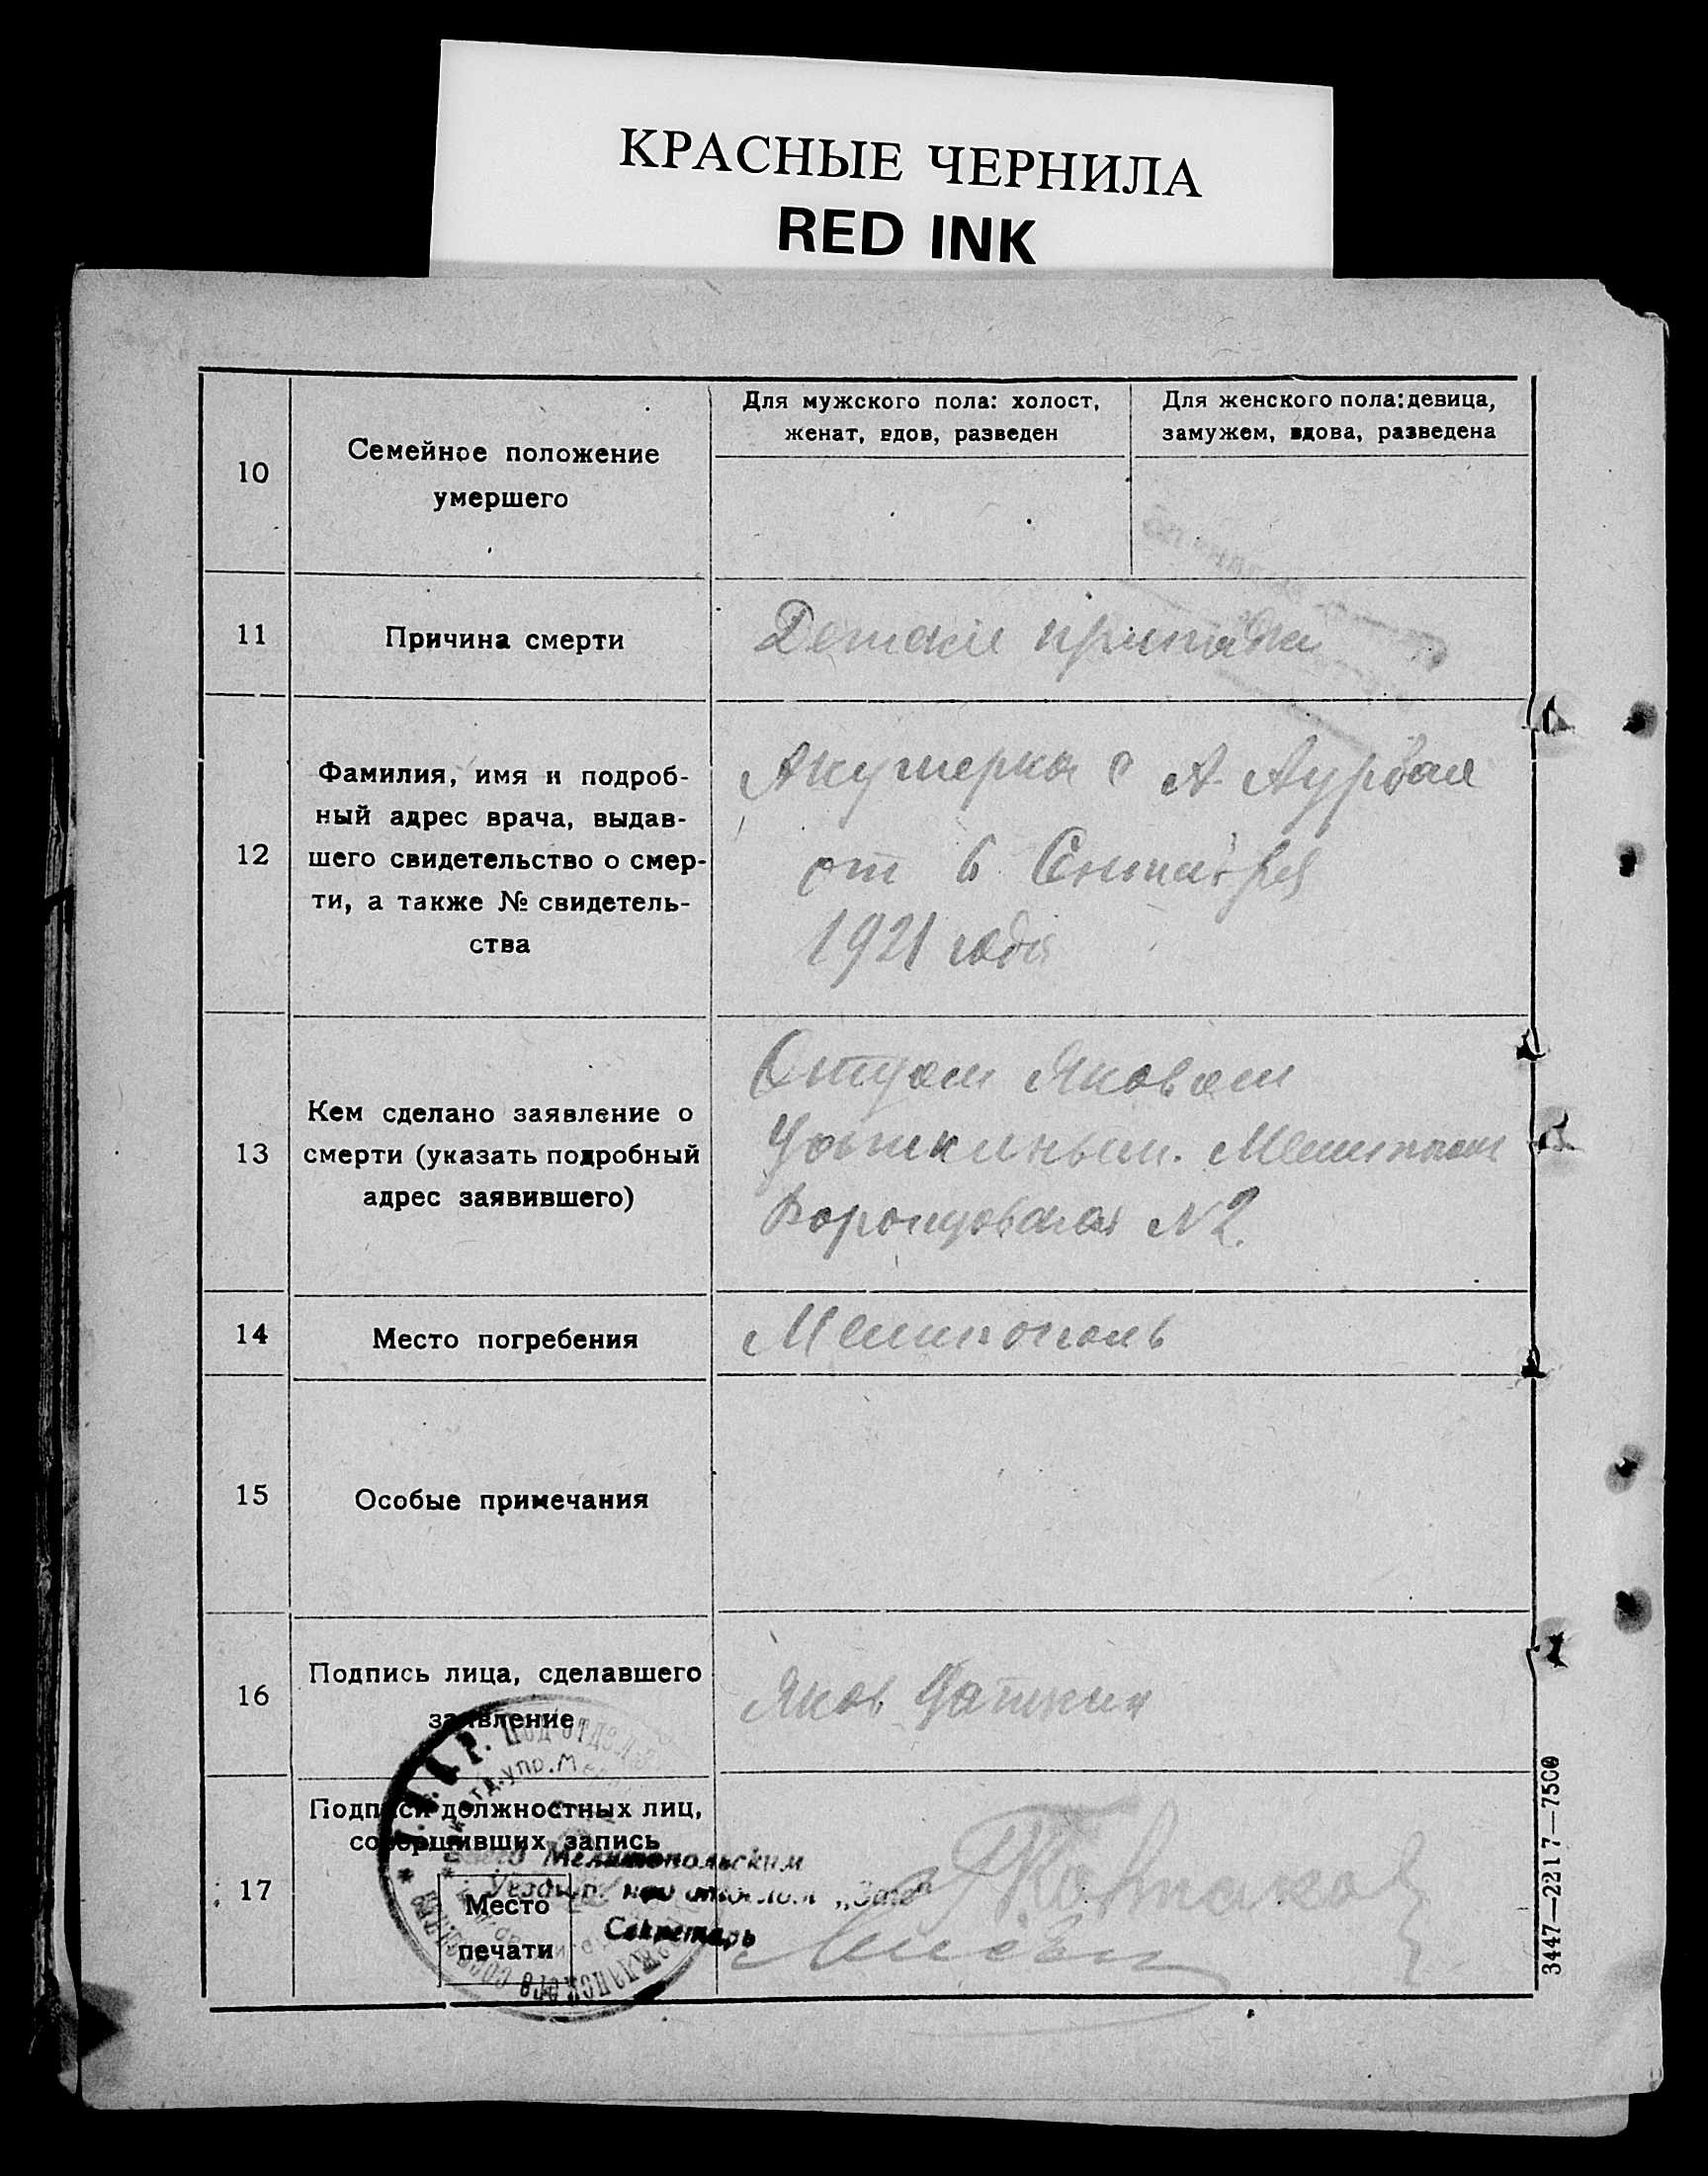 КРАСНЫЕ ЧЕРНИЛА
RED INK
10
Семейное положение
умершего
Для мужского пола: холост,
женат, вдов, разведен
Для женского пола: девица,
замужем, вдова, разведена
11
Причина смерти
Детские припадки
12
Фамилия, имя и подроб-
ный адрес врача, выдав-
шего свидетельство о смер-
ти, а также № свидетель-
ства
Акушерка
от 6 Сентября
1921 года
13
Кем сделано заявление о
смерти (указать подробный
адрес заявившего)
Отцом Яковом
Мелитополь
Воронцовская N 2
14
Место погребения
Мелитополь
15
Особые примечания
16
Подпись лица, сделавшего
заявление
Яков
17
Подписи должностных лиц,
совершивших запись
Мелитопольским
Место
печати
Секретарь
3447—2217—7500